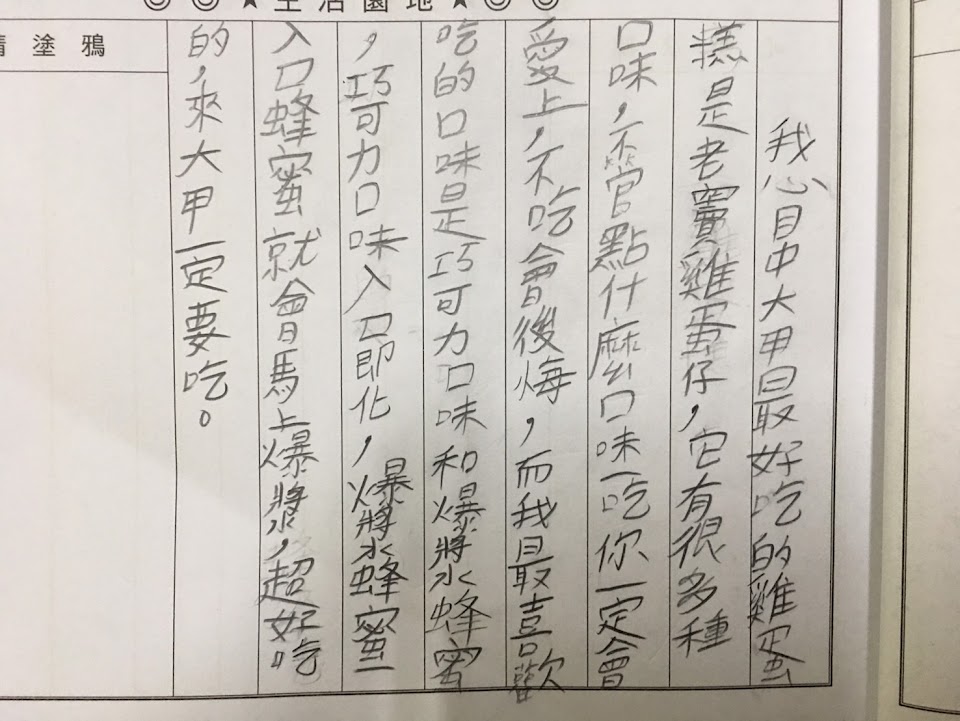 ◎◎★生活園地★◎◎
塗鴉
我心目中大甲最好吃的雞蛋
糕是老竇雞蛋仔，它有很多種
口味，不管點什麼口味一吃你一定會
愛上，不吃會後悔，而我最喜歡
吃的口味是巧可力口味和爆漿蜂蜜
，巧可力口味入口即化，爆漿蜂蜜一
入口蜂蜜就會馬上爆漿，超好吃
的，來大甲一定要吃。